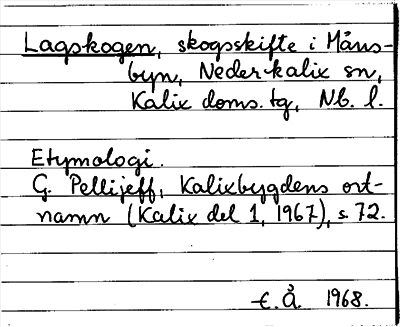 Lagskogen, skogsskifte i Måns-
byn, Nederkalix sn,
Kalix doms. tg, Nb. l.
Etymologi.
G. Pellijeff, Kalixbygdens ort-
namn (Kalix del 1, 1967), s. 72.
E. Å. 1968.